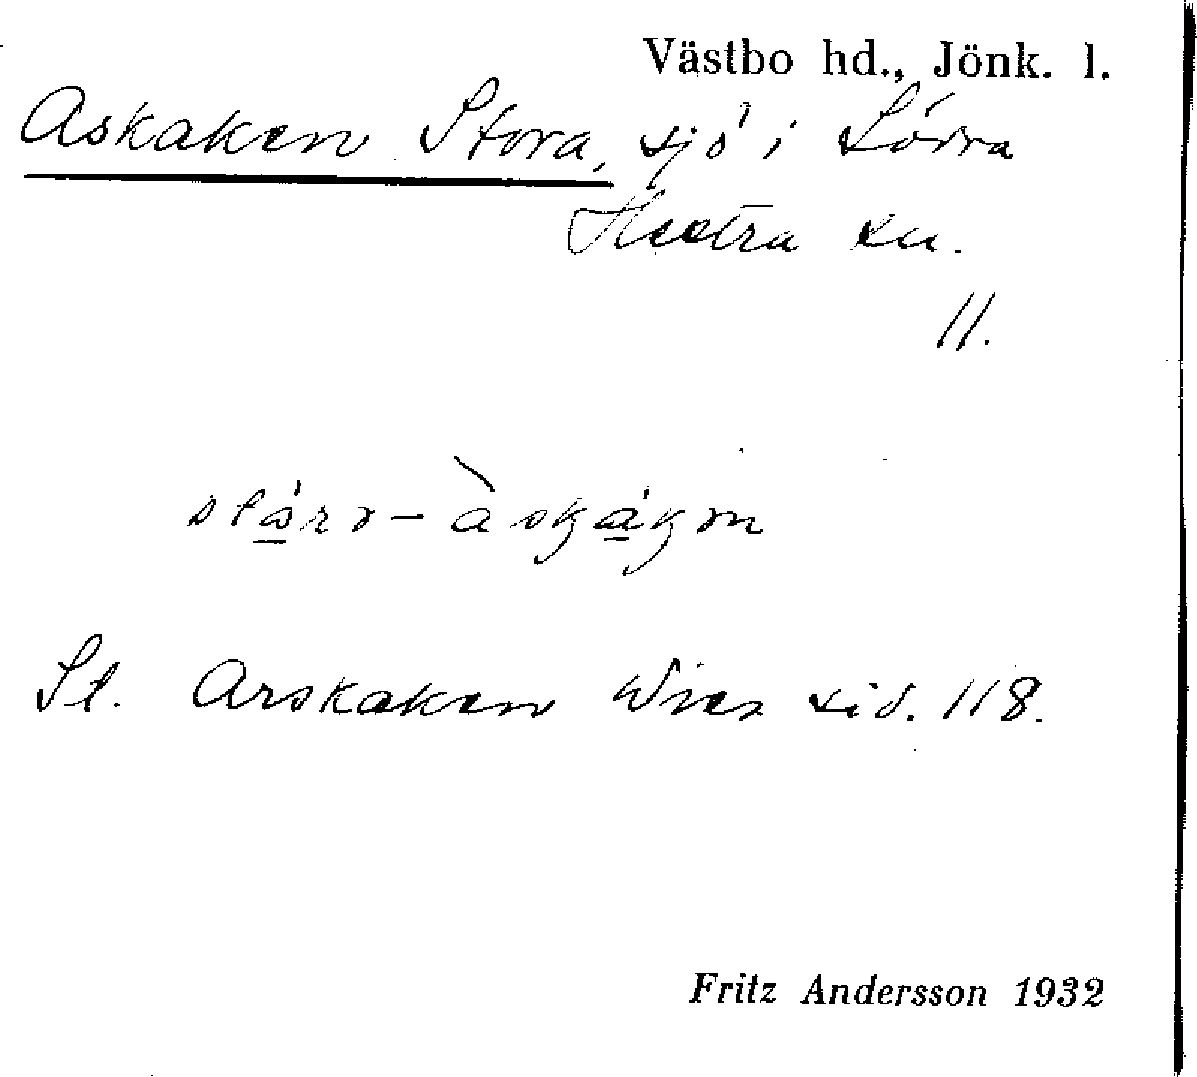 Västbo hd., Jönk. l.
Askaken Stora, sjö i Södra
Hestra sn.
11.
stárə-àskákən
St. Arskaken Wies sid. 118.
Fritz Andersson 1932